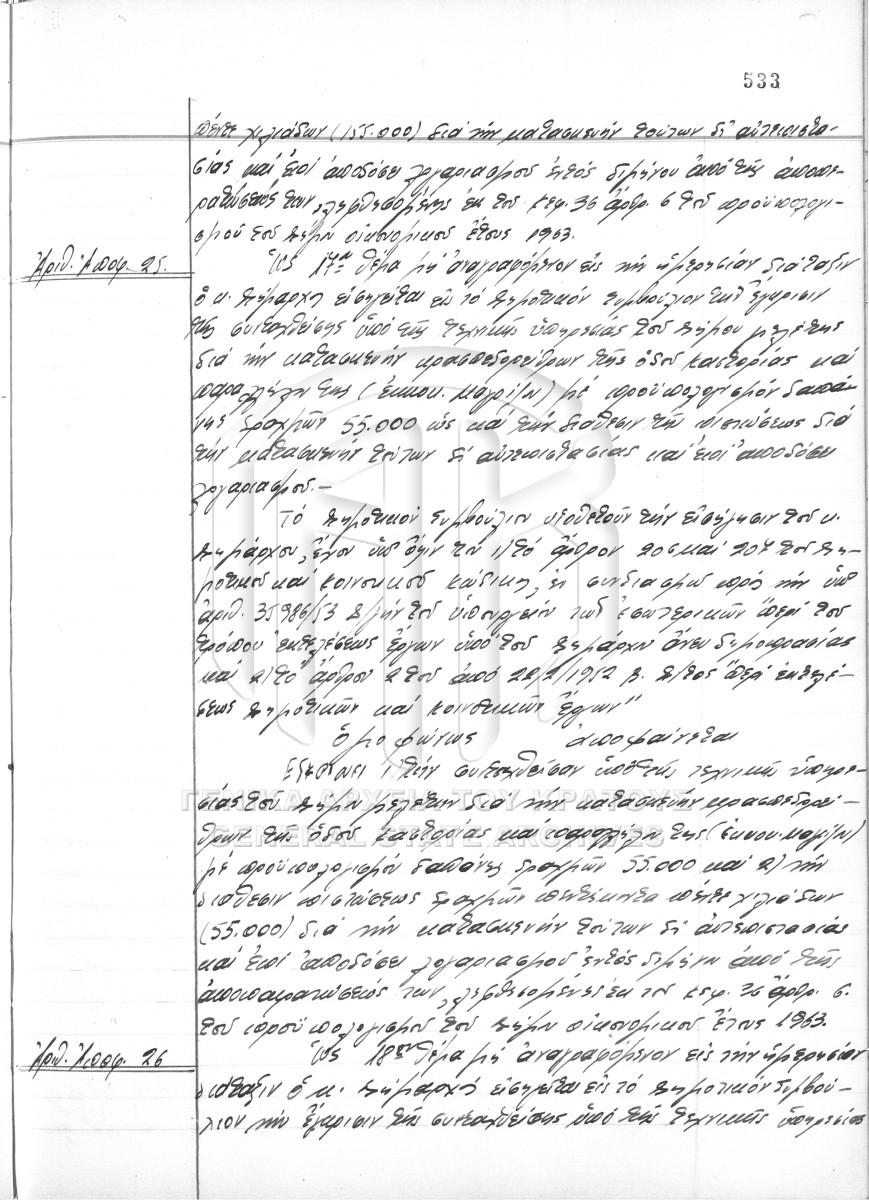 533
πέντε χιλιάδων (155.000) διά τήν κατασκευήν τούτων δι' αὐτεπιστα-
σίας καί ἐπί ἀποδόσει λογαριασμοῦ ἐντός διμήνου ἀπό τῆς ἀποπε-
ρατώσεώς των, ληφθησομένης ἐκ τοῦ Κεφ. 36 ἄρθρ. 6 τοῦ προϋπολογι-
σμοῦ τοῦ Δήμου οἰκονομικοῦ ἔτους 1963.
Ἀριθ. Ἀποφ. 25.
Ὡς 17ον θέμα μή ἀναγραφόμενον εἰς τήν ἡμερησίαν διάταξιν
ὁ κ. Δήμαρχος εἰσηγεῖται εἰς τό Δημοτικόν Συμβούλιον τήν ἔγκρισιν
τῆς συνταχθείσης ὑπό τῆς τεχνικῆς ὑπηρεσίας τοῦ Δήμου μελέτης
διά τήν κατασκευήν κρασπεδορείθρων τῆς ὁδοῦ Καστοριάς καί
παραλλήλου της μέ προϋπολογισμόν δαπά-
νης δραχμῶν 55.000 ὡς καί τήν διάθεσιν τῆς πιστώσεως διά
τήν κατασκευήν τούτων δι' αὐτεπιστασίας καί ἐπί ἀποδόσει
λογαριασμοῦ.-
Τό Δημοτικόν Συμβούλιον υἱοθετοῦν τήν εἰσήγησιν τοῦ κ.
Δημάρχου, ἔχον ὑπ' ὄψιν του 1) τό ἄρθρον 205 καί 207 τοῦ Δη-
μοτικοῦ καί Κοινοτικοῦ Κώδικος, ἐν συνδιασμῶ πρός τήν ὑπ'
ἀριθ. 35986/53 Δ/γήν τοῦ Ὑπουργείου τῶν Ἐσωτερικῶν "περί τοῦ
τρόπου ἐκτελέσεως ἔργων ὑπό τοῦ Δημάρχου ἄνευ δημοπρασίας
καί 2) τό ἄρθρον 2 τοῦ ἀπό 22/2/1952 Β. Δ/τος "περί ἐκτελέ-
σεως Δημοτικῶν καί Κοινοτικῶν Ἔργων"
Ὁμοφώνως ἀποφαίνεται
Ἐγκρίνει 1) τήν συνταχθεῖσαν ὑπό τῆς τεχνικῆς ὑπηρε-
σίας τοῦ Δήμου μελέτην διά τήν κατασκευήν κρασπεδορεί-
ΓΕΝΙΚΑ ΑΡΧΕΙΑ ΤΟΥ ΚΡΑΤΟΥΣ
θρων τῆς ὁδοῦ Καστοριάς καί παραλλήλου της
GENERAL STATE ARCHIVES
μέ προϋπολογισμόν δαπάνης δραχμῶν 55.000 καί 2) τήν
διάθεσιν πιστώσεως δραχμῶν πεντήκοντα πέντε χιλιάδων
(55.000) διά τήν κατασκευήν τούτων δι' αὐτεπιστασίας
καί ἐπί ἀποδόσει λογαριασμοῦ ἐντός διμήνου ἀπό τῆς
ἀποπερατώσεώς των, ληφθησομένης ἐκ τοῦ Κεφ. 36 ἄρθρ. 6.
τοῦ προϋπολογισμοῦ τοῦ Δήμου οἰκονομικοῦ ἔτους 1963.
Ἀριθ. Ἀποφ. 26
Ὡς 18ον θέμα μή ἀναγραφόμενον εἰς τήν ἡμερησίαν
διάταξιν ὁ κ. Δήμαρχος εἰσηγεῖται εἰς τό Δημοτικόν Συμβού-
λιον τήν ἔγκρισιν τῆς συνταχθείσης ὑπό τῆς τεχνικῆς ὑπηρεσίας